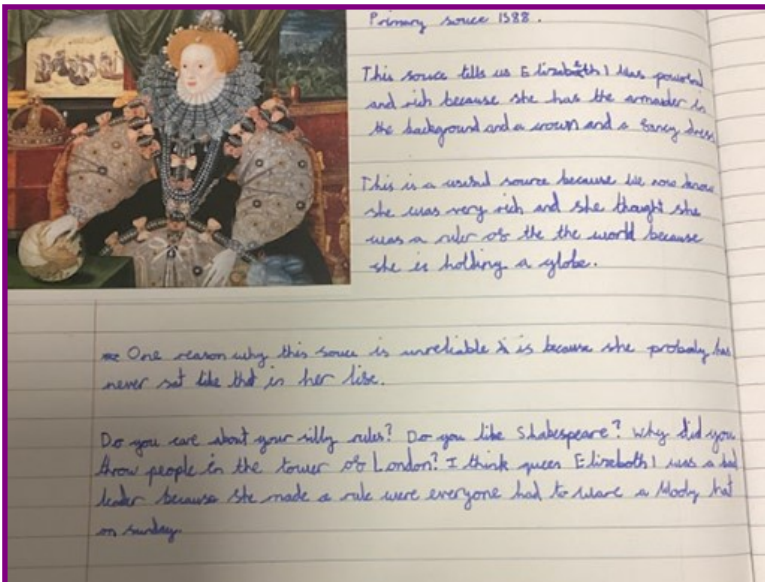 Primary souce 1588.
This souce tells us Elizabeth I was powerful
and rich because she has the armarder in
the background and a crown and a fancy dress
This is a useful source because we now know
she was very rich and she thought she
was a ruler of the the world because
she is holding a globe.
One reason why this souce is unreliable is because she probaly has
never sat like that in her life.
Do you care about your silly rules? Do you like Shakespeare? Why did you
throw people in the tower of London? I think queen Elizabeth I was a bad
leader because she made a rule were everyone had to ware a blody hat
on sunday.